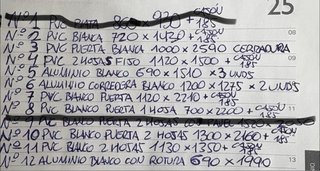 25
Nº 1 PVC PLATA 860 × 930 + CAJON 185
Nº 2 PVC BLANCA 720 × 1420 + CAJON 185
Nº 3 PVC PUERTA BLANCA 1000 × 2590 CERRADURA
Nº 4 PVC 2 HOJAS FIJO 1120 × 1500 + CAJON 185
Nº 5 ALUMINIO BLANCO 690 × 1510 × 3 UNDS
Nº 6 ALUMINIO CORREDERA BLANCO 1200 × 1275 × 2 UNDS
Nº 7 PVC BLANCO PUERTA 1120 × 2210 + CAJON 185
Nº 8 PVC BLANCO PUERTA 1 HOJA 700 × 2200 + CAJON 185
PVC BLANCO PUERTA 2 HOJAS
Nº 10 PVC BLANCO PUERTA 2 HOJAS 1300 × 2160 + CAJON 185
Nº 11 PVC BLANCO 2 HOJAS 1130 × 1350 + CAJON 185
Nº 12 ALUMINIO BLANCO CON ROTURA 690 × 1990
08
09
13